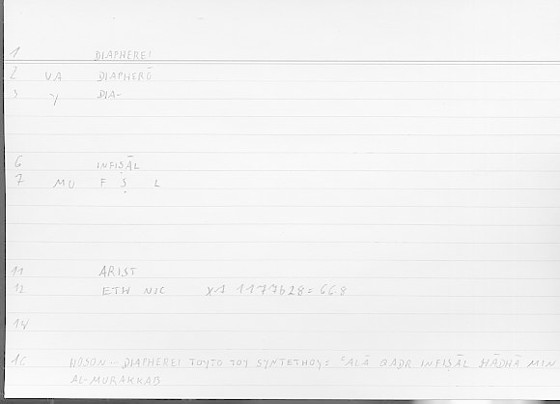 1 DIAPHEREI
2 VA DIAPHERŌ
3 Y DIA-
6 INFIṢĀL
7 MU F Ṣ L
11 ARIST
12 ETH NIC 1177b28 = 66.8
14
16 HOSON.. DIAPHEREI TOYTO TOY SYNTETHOY: ʿALĀ QADR INFIṢĀL HĀDHĀ MIN
AL-MURAKKAB